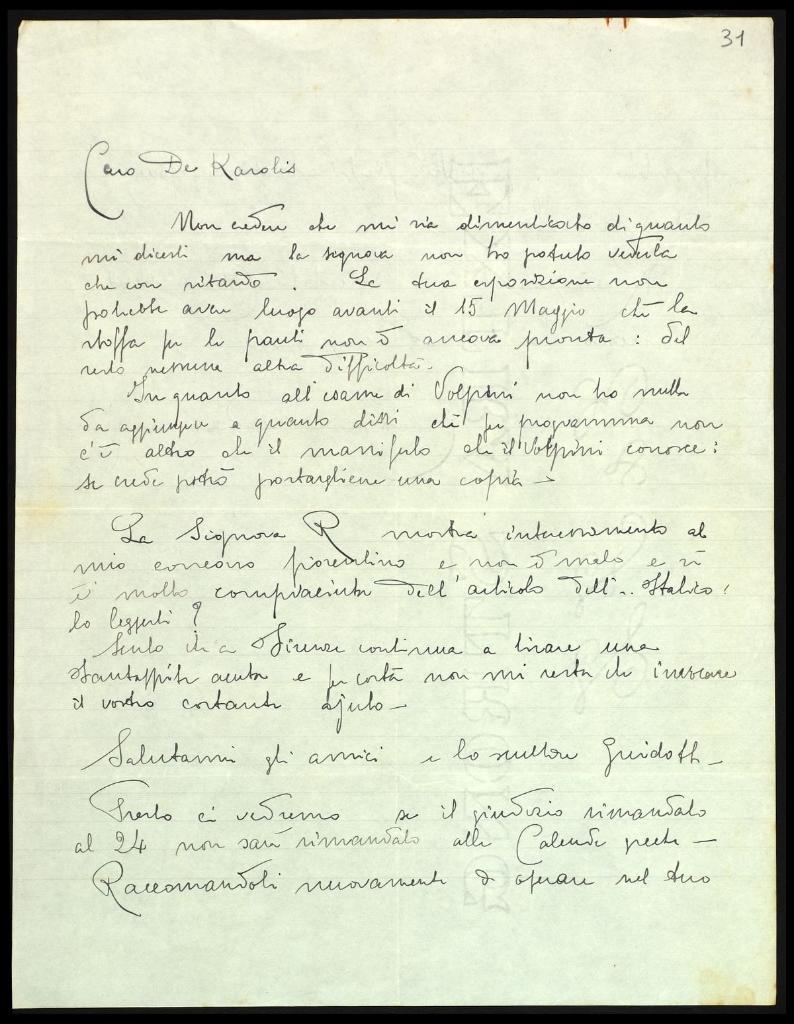 31
Caro De Karolis
Non credere che mi sia dimenticato di quanto
mi dicesti ma la signora non ho potuto vederla
che con ritardo. La tua esposizione non
potrebbe aver luogo avanti il 15 Maggio chè la
stoffa per le pareti non è ancora pronta: del
resto nessuna altra difficoltà.
In quanto all'esame di Volpini non ho nulla
da aggiungere a quanto dissi chè per programma non
c'è altro che il manifesto che il Volpini conosce:
se crede potrò portargliene una copia –
La Signora R mostra interessamento al
mio consono fiorentino e non è male e si
è molto compiaciuta dell'articolo dell'.. Italico:
lo leggesti?
Sento che a Firenze continua a tirare una
acuta e per costà non mi resta che invocare
il vostro costante ajuto –
Salutami gli amici e lo scultore Guidotti –
Presto ci vedremo se il giudizio rimandato
al 24 non sarà rimandato alle Calende greche –
Raccomandoti nuovamente di operare nel tuo